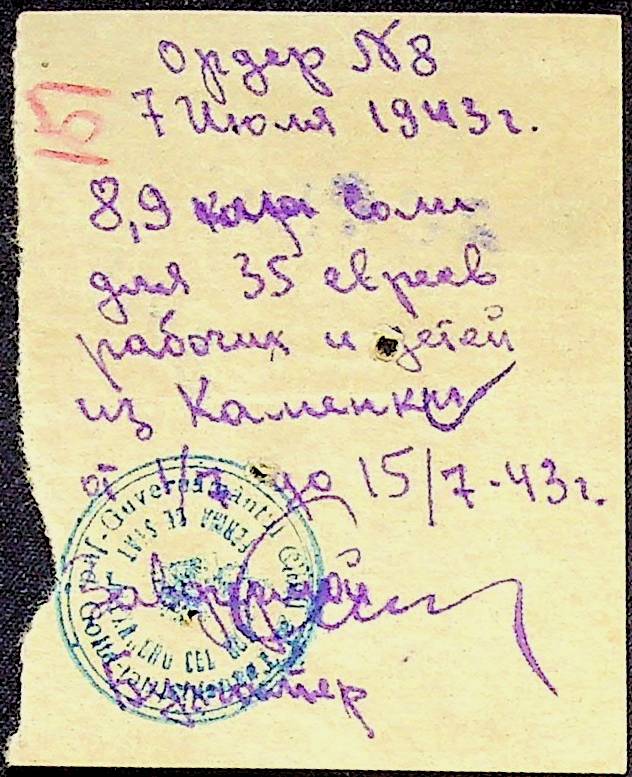 Ордер N8
151
7 Июля 1943г.
8,9 соли
для 35 евреев
рабочих и детей
из Каменки
от 1/7 до 15/7-43г.
Guvernamântul
FERMA DE STAT